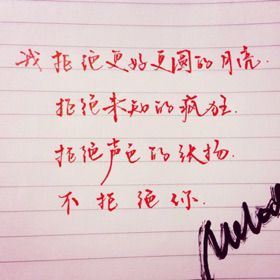 我拒绝更好更圆的月亮.
拒绝未知的疯狂.
拒绝声色的张扬.
不拒绝你.